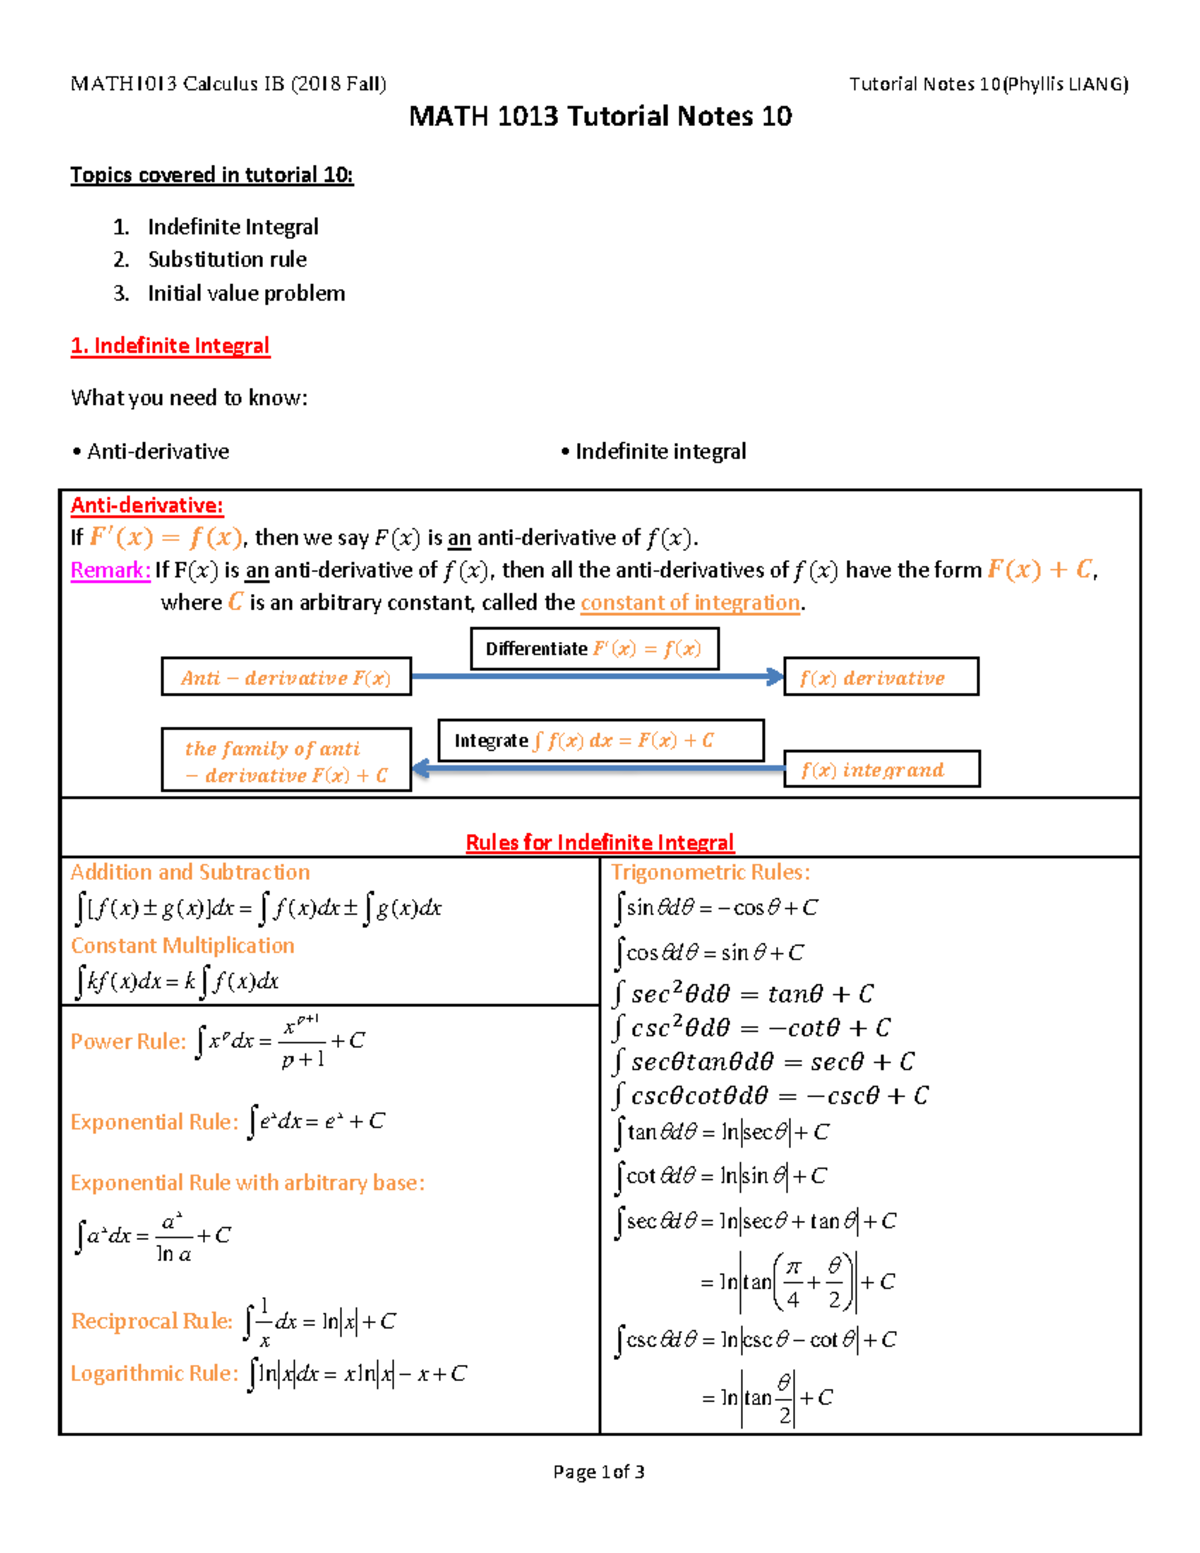 MATH1013 Calculus IB (2018 Fall) Tutorial Notes 10(Phyllis LIANG)
MATH 1013 Tutorial Notes 10
Topics covered in tutorial 10:
1. Indefinite Integral
2. Substitution rule
3. Initial value problem
1. Indefinite Integral
What you need to know:
• Anti-derivative • Indefinite integral
Anti-derivative:
If F′(x) = f(x), then we say F(x) is an anti-derivative of f(x).
Remark: If F(x) is an anti-derivative of f(x), then all the anti-derivatives of f(x) have the form F(x) + C,
where C is an arbitrary constant, called the constant of integration.
Differentiate F′(x) = f(x)
Anti − derivative F(x)
f(x) derivative
Integrate ∫ f(x) dx = F(x) + C
the family of anti
− derivative F(x) + C
f(x) integrand
Rules for Indefinite Integral
Addition and Subtraction
∫[f(x) ± g(x)]dx = ∫f(x)dx ± ∫g(x)dx
Constant Multiplication
∫kf(x)dx = k∫f(x)dx
Power Rule: ∫x^p dx = x^(p+1)/(p+1) + C
Exponential Rule: ∫e^x dx = e^x + C
Exponential Rule with arbitrary base:
∫a^x dx = a^x/ln a + C
Reciprocal Rule: ∫1/x dx = ln|x| + C
Logarithmic Rule: ∫ln|x|dx = x ln|x| − x + C
Trigonometric Rules:
∫sin θdθ = −cos θ + C
∫cos θdθ = sin θ + C
∫ sec²θdθ = tanθ + C
∫ csc²θdθ = −cotθ + C
∫ secθtanθdθ = secθ + C
∫ cscθcotθdθ = −cscθ + C
∫tan θdθ = ln|sec θ| + C
∫cot θdθ = ln|sin θ| + C
∫sec θdθ = ln|sec θ + tan θ| + C
= ln|tan(π/4 + θ/2)| + C
∫csc θdθ = ln|csc θ − cot θ| + C
= ln|tan θ/2| + C
Page 1 of 3